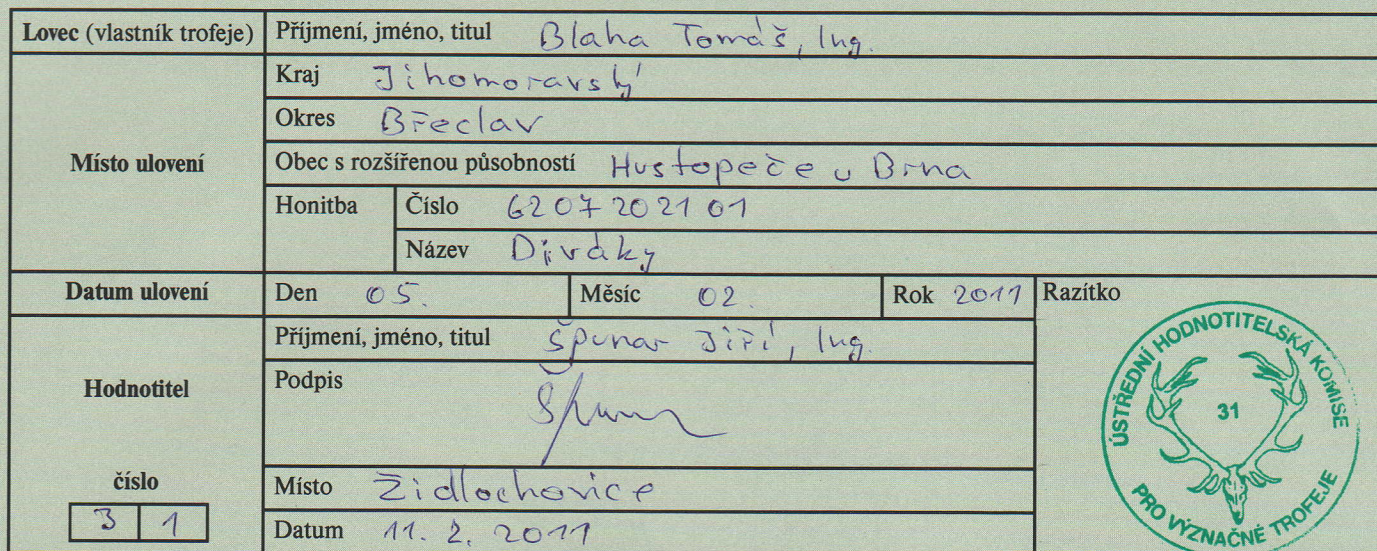 Lovec (vlastník trofeje) Příjmení, jméno, titul Blaha Tomáš, Ing.
Místo ulovení
Kraj Jihomoravský
Okres Břeclav
Obec s rozšířenou působností Hustopeče u Brna
Honitba Číslo 6207202101
Název Diváky
Datum ulovení Den 05. Měsíc 02. Rok 2011 Razítko
Hodnotitel
Příjmení, jméno, titul Špunar Jiří, Ing.
Podpis
číslo
31
Místo Židlochovice
Datum 11. 2. 2011
ÚSTŘEDNÍ HODNOTITELSKÁ KOMISE
31
PRO VÝZNAČNÉ TROFEJE